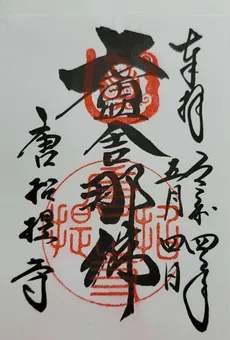 奉拝
令和四年
五月四日
盧舎那佛
唐招提寺